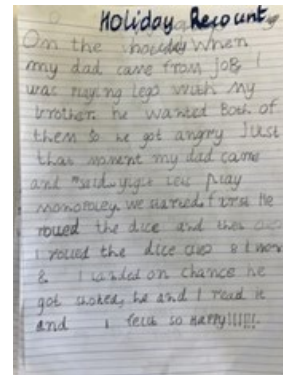 Holiday Recount
On the holiday When
my dad came from job I
was playing lego with my
brother. he wanted Both of
them so he got angry Just
that moment my dad came
and said lets Play
monopoley. we started first He
rolled the dice and then
I rolled the dice
& I landed on chance he
got he and I read it
and I felt so Happy!!!!!!